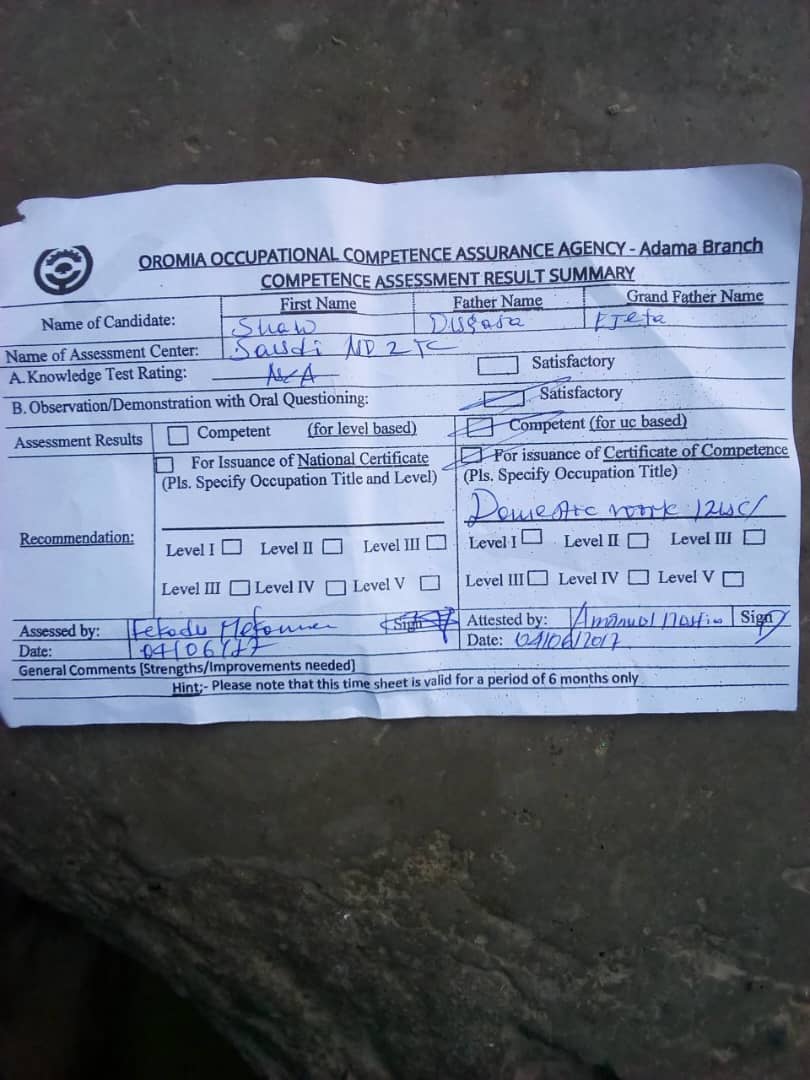 OROMIA OCCUPATIONAL COMPETENCE ASSURANCE AGENCY - Adama Branch
COMPETENCE ASSESSMENT RESULT SUMMARY
First Name Father Name Grand Father Name
Name of Candidate: Shaw Dugasa Ejeta
Name of Assessment Center: Saudi
A. Knowledge Test Rating: N/A Satisfactory
B. Observation/Demonstration with Oral Questioning: Satisfactory
Assessment Results Competent (for level based) Competent (for uc based)
For Issuance of National Certificate For issuance of Certificate of Competence
(Pls. Specify Occupation Title and Level) (Pls. Specify Occupation Title)
Domestic work
Recommendation: Level I Level II Level III Level I Level II Level III
Level III Level IV Level V Level III Level IV Level V
Assessed by: Fekadu Mekonnen Sign Attested by: Sign
Date: 04/06/17 Date: 04/06/2017
General Comments [Strengths/Improvements needed]
Hint;- Please note that this time sheet is valid for a period of 6 months only